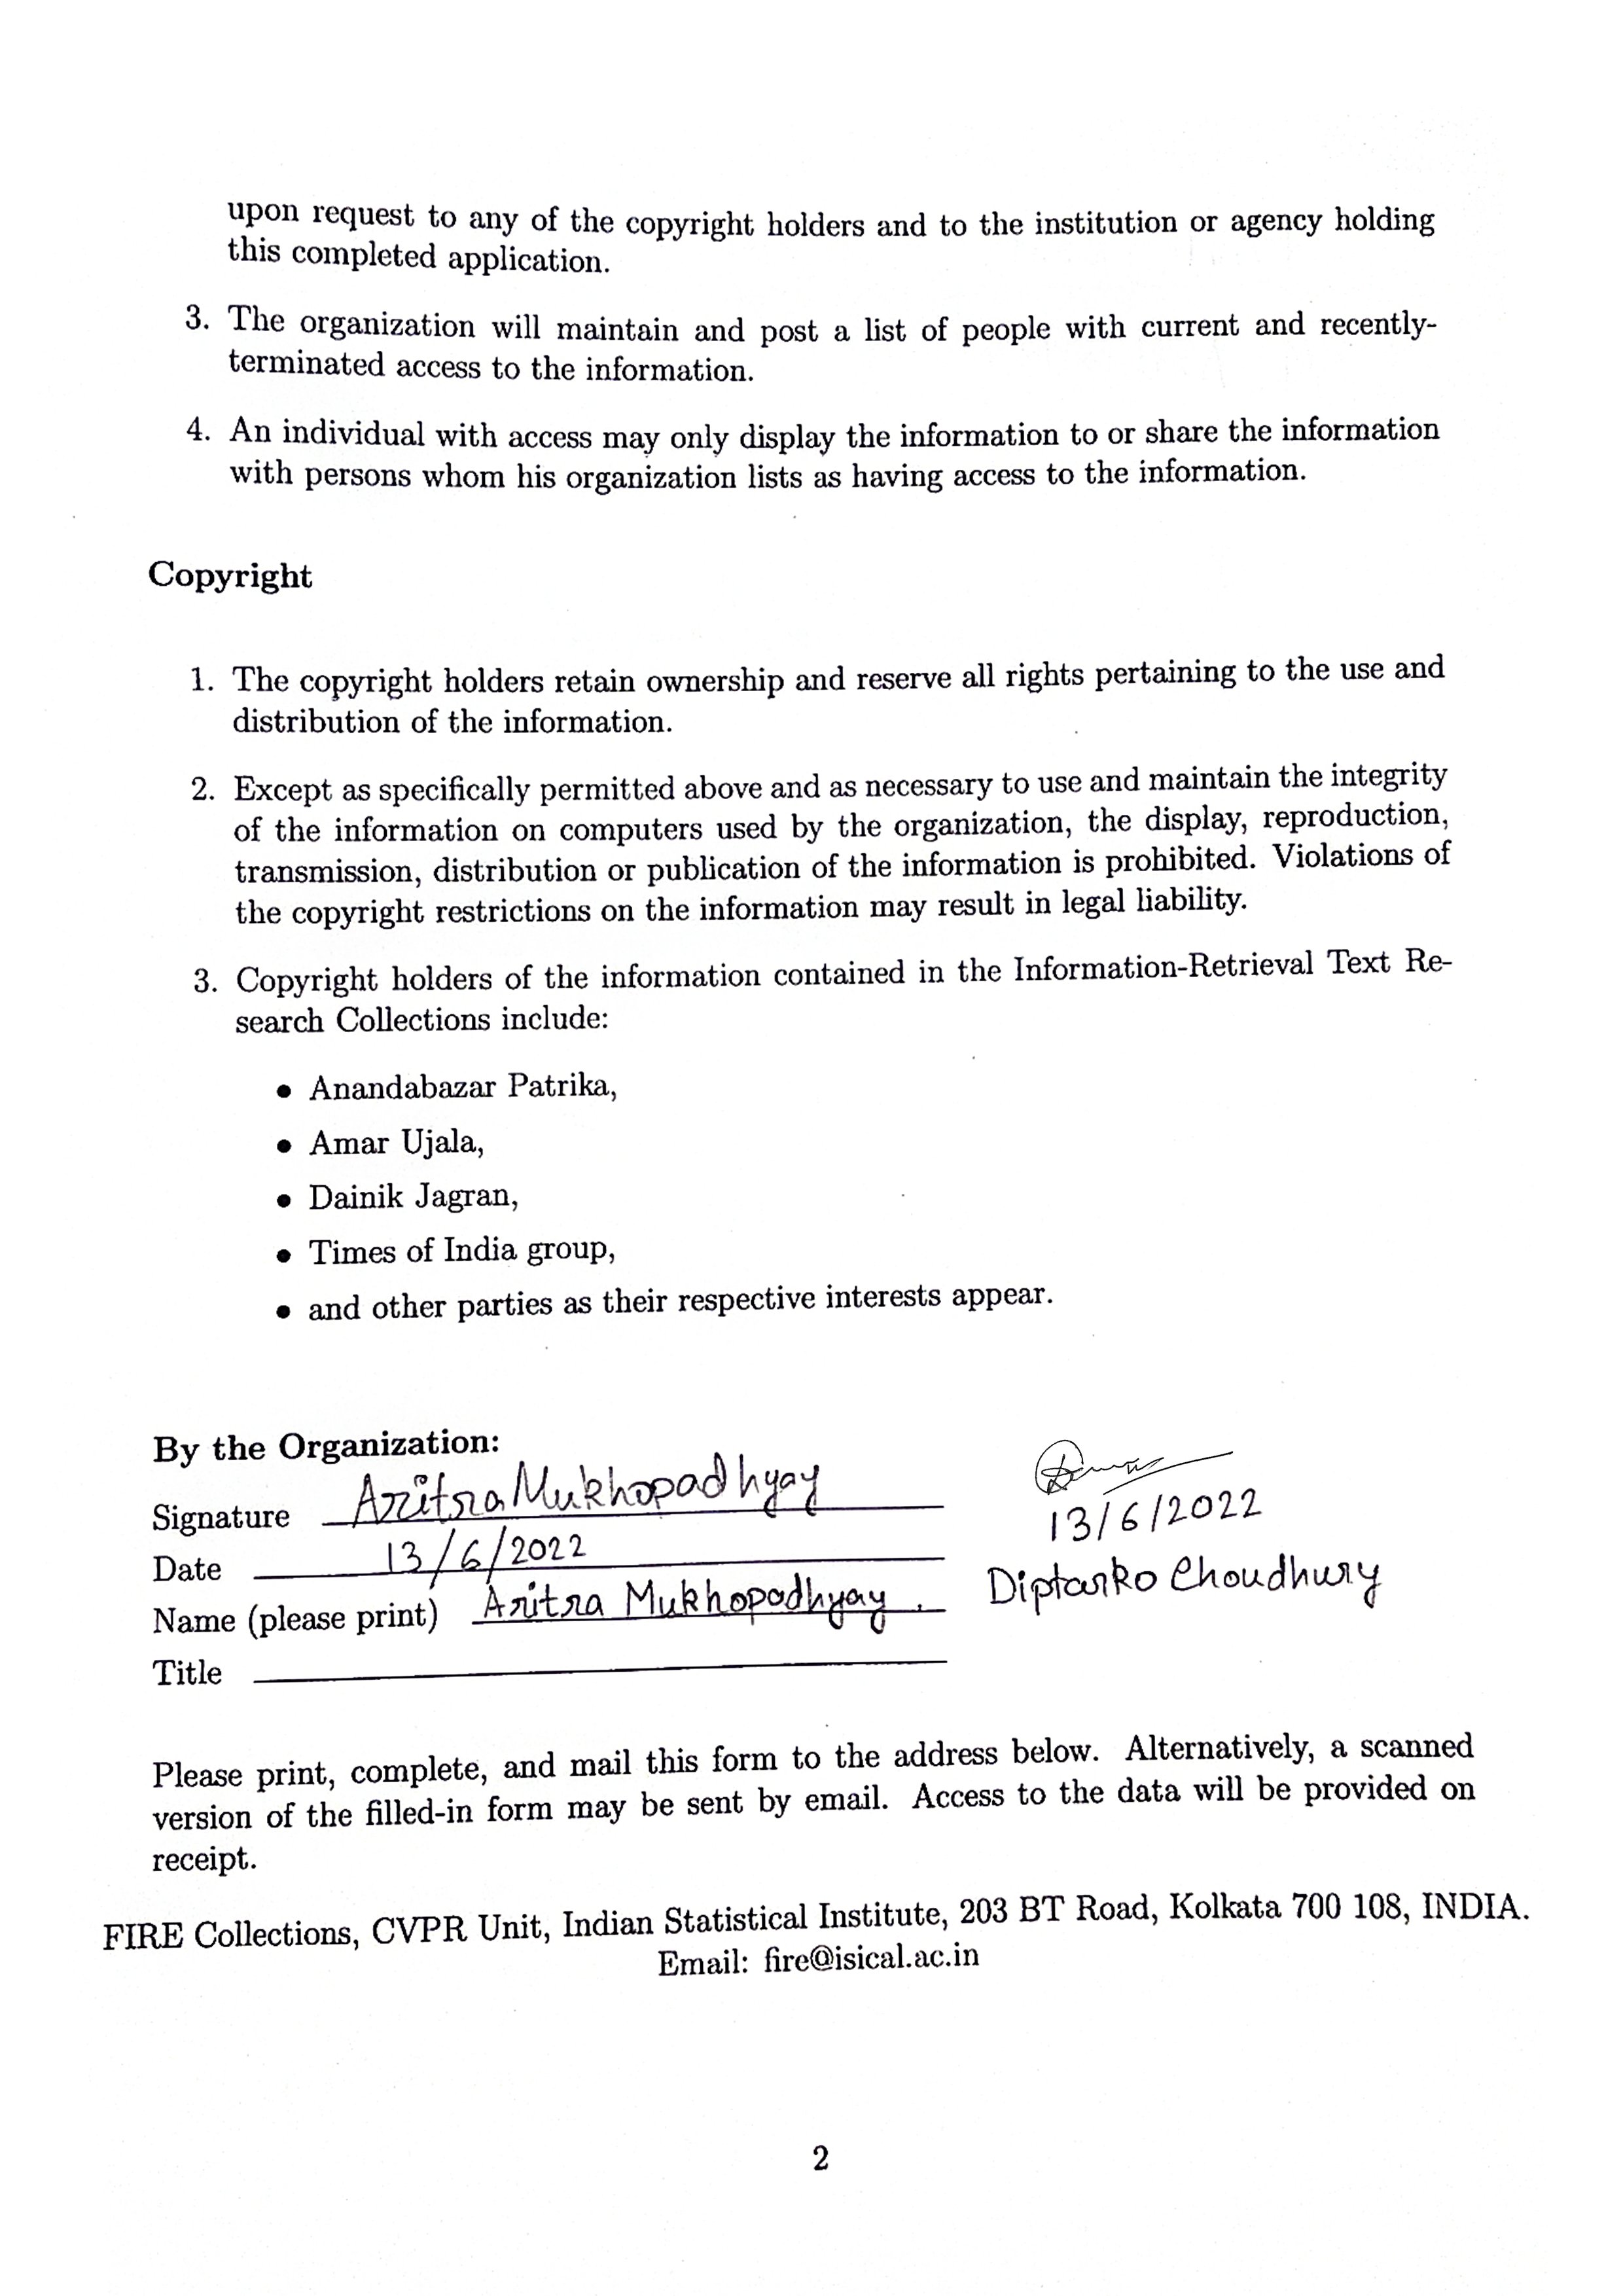 upon request to any of the copyright holders and to the institution or agency holding
this completed application.
3. The organization will maintain and post a list of people with current and recently-
terminated access to the information.
4. An individual with access may only display the information to or share the information
with persons whom his organization lists as having access to the information.
Copyright
1. The copyright holders retain ownership and reserve all rights pertaining to the use and
distribution of the information.
2. Except as specifically permitted above and as necessary to use and maintain the integrity
of the information on computers used by the organization, the display, reproduction,
transmission, distribution or publication of the information is prohibited. Violations of
the copyright restrictions on the information may result in legal liability.
3. Copyright holders of the information contained in the Information-Retrieval Text Re-
search Collections include:
• Anandabazar Patrika,
• Amar Ujala,
• Dainik Jagran,
• Times of India group,
• and other parties as their respective interests appear.
By the Organization:
Signature Aritra Mukhopadhyay
Date 13/6/2022
13/6/2022
Name (please print) Aritra Mukhopadhyay.
Diptarko Choudhury
Title
Please print, complete, and mail this form to the address below. Alternatively, a scanned
version of the filled-in form may be sent by email. Access to the data will be provided on
receipt.
FIRE Collections, CVPR Unit, Indian Statistical Institute, 203 BT Road, Kolkata 700 108, INDIA.
Email: fire@isical.ac.in
2